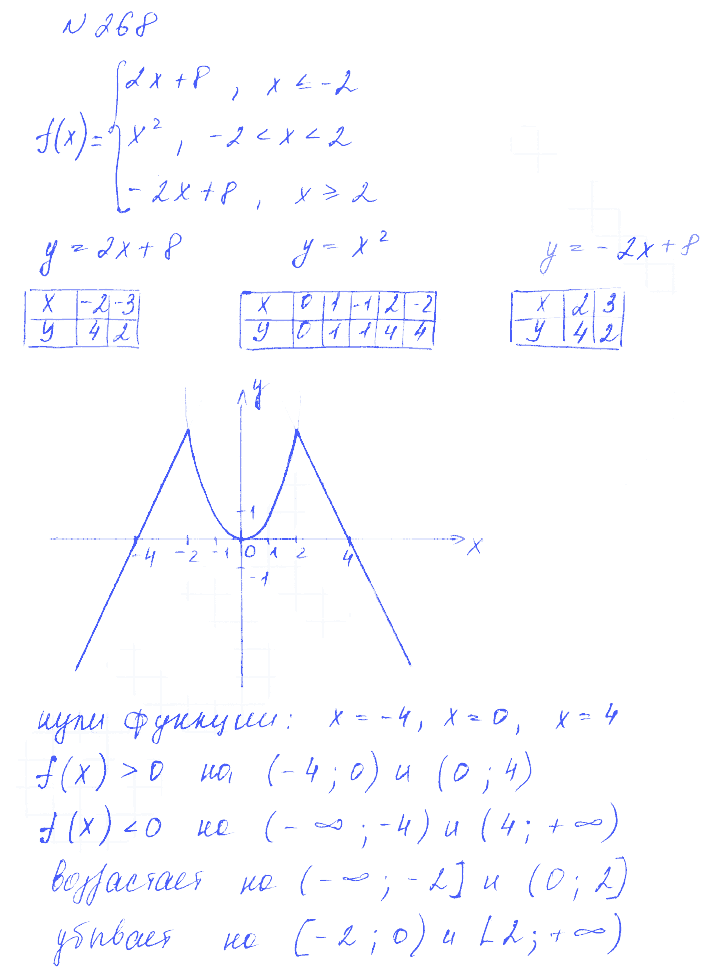 N 268
2x+8, x ≤ -2
f(x)= x², -2 < x < 2
-2x+8, x ≥ 2
y = 2x+8 y = x² y = -2x+8
x -2 -3 x 0 1 -1 2 -2 x 2 3
y 4 2 y 0 1 1 4 4 y 4 2
y
1
-4 -2 -1 0 1 2 4 x
-1
нули функции: x = -4, x = 0, x = 4
f(x) > 0 на (-4; 0) и (0; 4)
f(x) < 0 на (-∞; -4) и (4; +∞)
возрастает на (-∞; -2] и (0; 2]
убывает на [-2; 0) и [2; +∞)